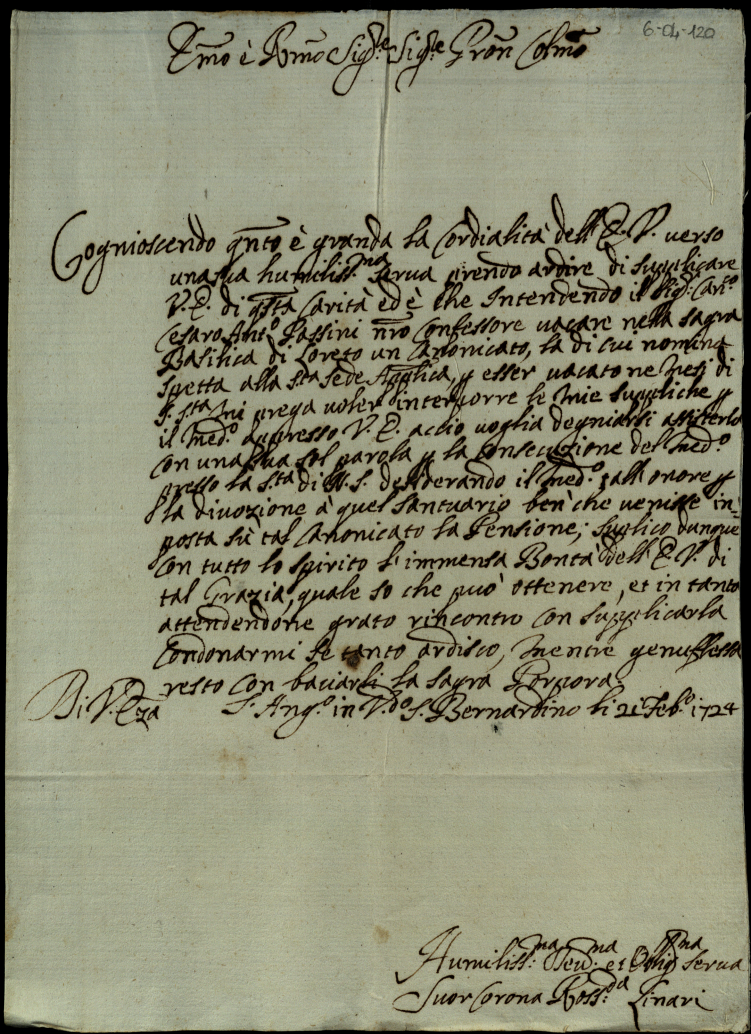 6-04-120
Emo è Rmo Sig.re Sig.re Pron Colmo
Cognioscendo qnto è granda la Cordialità dell'E. V. verso
una sua humiliss.ma serva prendo ardire di supplicare
V. E. di qsta Carità ed è che Intendendo il Sig. Can.co
Cesaro Ant.o Passini nro Confessore vacare nella sagra
Basilica di Loreto un Canonicato, la di cui nomina
spetta alla S.ta Sede Applica, p esser vacato ne Mesi di
S. S.ta mi prega voler interporre le mie suppliche p
il Med.o appresso V. E. acciò voglia degniarsi assisterlo
con una sua sol parola p la Consecuzione del Med.o
presso la S.ta di N. S. desiderando il Med.o tall'onore p
la divozione à quel Santuario ben'che venisse in=
posta sù tal Canonicato la Pensione; suplico dunque
con tutto lo spirito l'immensa Bontà dell'E. V. di
tal Grazia, quale so che può ottenere, et in tanto
attendendone grato rincontro con supplicarla
Condonarmi se tanto ardisco, mentre genuflessa
resto con baciarli la sagra Porpora.
Di V. Eza S. Ang.o in V.do S. Bernardino li 21 Feb.o 1724
Humiliss.ma Dev.ma et Oblig.ma serva
Suor Corona Linari